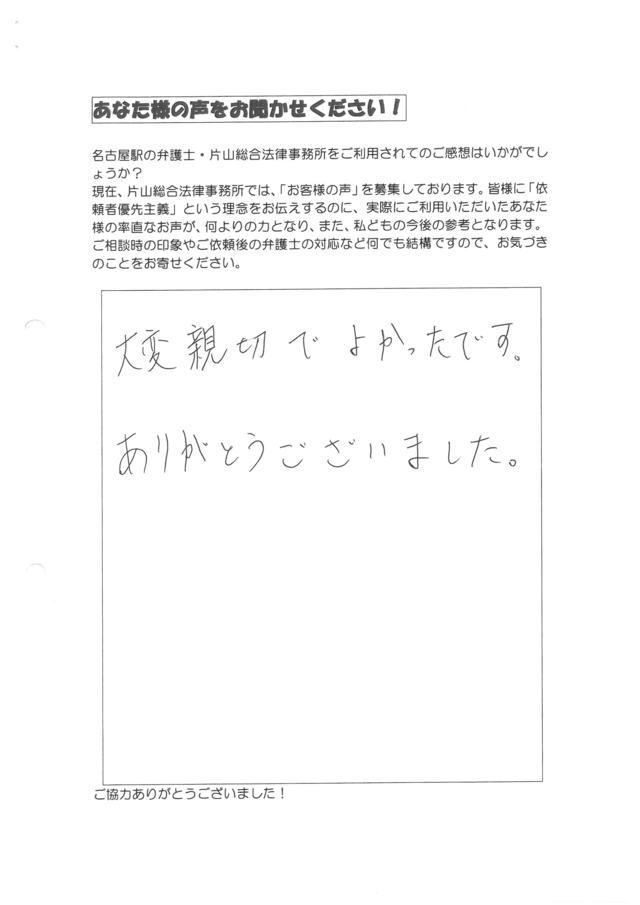 あなた様の声をお聞かせください！
名古屋駅の弁護士・片山総合法律事務所をご利用されてのご感想はいかがでし
ょうか？
現在、片山総合法律事務所では、「お客様の声」を募集しております。皆様に「依
頼者優先主義」という理念をお伝えするのに、実際にご利用いただいたあなた
様の率直なお声が、何よりの力となり、また、私どもの今後の参考となります。
ご相談時の印象やご依頼後の弁護士の対応など何でも結構ですので、お気づき
のことをお寄せください。
大変親切でよかったです。
ありがとうございました。
ご協力ありがとうございました！